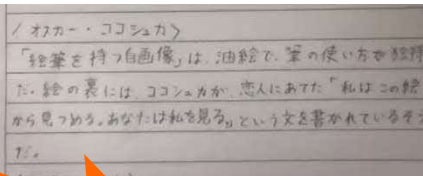 〈オスカー・ココシュカ〉
「絵筆を持つ自画像」は、油絵で、筆の使い方が独特
だ。絵の裏には、ココシュカが、恋人にあてた「私はこの絵
から見つめる。あなたは私を見る。」という文を書かれているそう
だ。